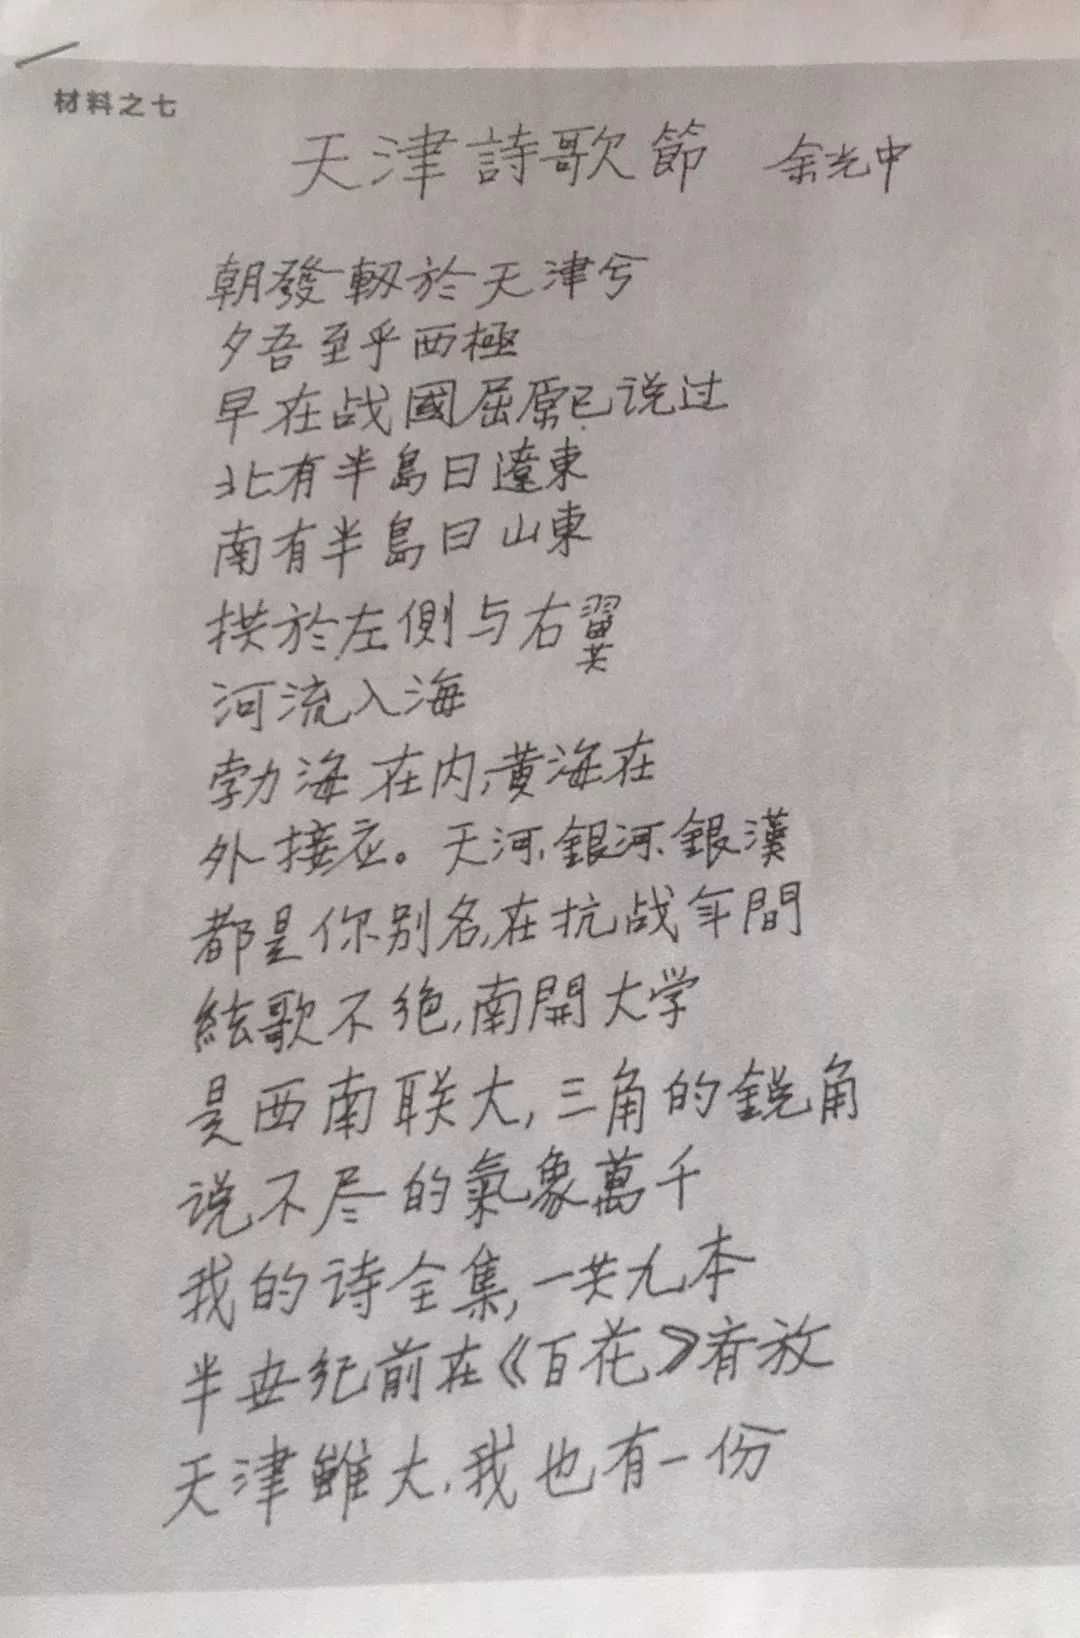 材料之七
天津詩歌節 余光中
朝發軔於天津兮
夕吾至乎西極
早在战國屈原已说过
北有半島曰遼東
南有半島曰山東
拱於左側与右翼
河流入海
勃海在内,黄海在
外接应。天河、銀河、銀漢
都是你别名,在抗战年間
絃歌不绝,南開大学
是西南联大,三角的鋭角
说不尽的氣象萬千
我的诗全集,一共九本
半世纪前在《百花》齐放
天津雖大,我也有一份